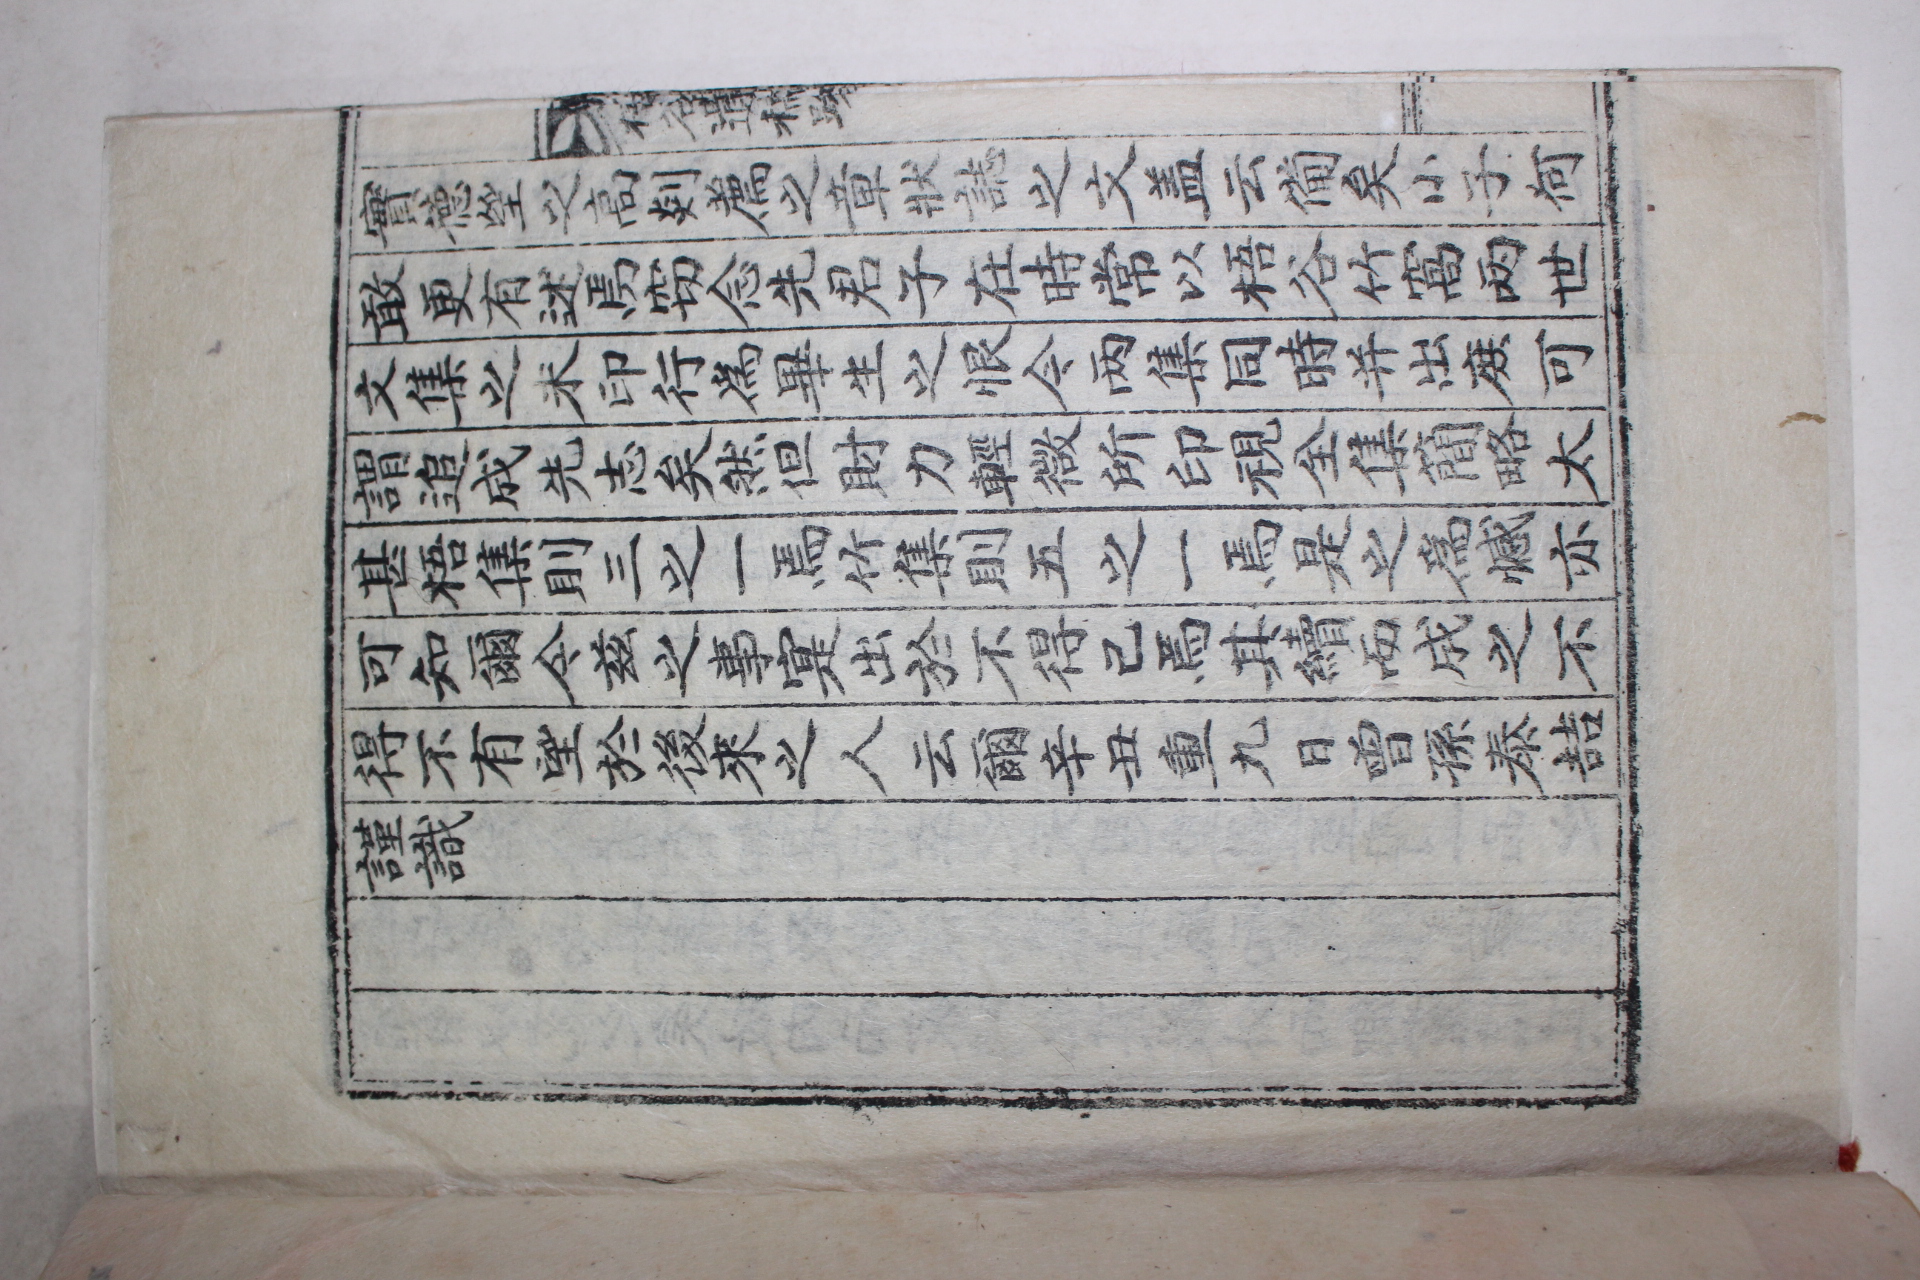 梧谷遺稿跋
實德㘴之高剡薦之章狀誌之文盖云備矣小子何
敢更有述焉窃念先君子在時常以梧谷竹窩兩世
文集之未印行爲畢生之恨今两集同時并出庶可
謂追成先志矣然但財力輕微所印視全集簡略太
甚梧集則三之一焉竹集則五之一焉是之爲憾亦
可知爾今玆之事寔出於不得已焉其續而成之不
得不有望於後來之人云爾辛丑重九日曾孫泰喆
謹識